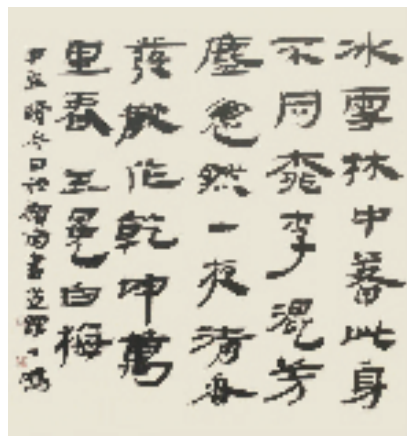 冰雪林中著此身
不同桃李混芳
塵忽然一夜清香
發散作乾坤萬
里春王冕白梅
晴冬日 書